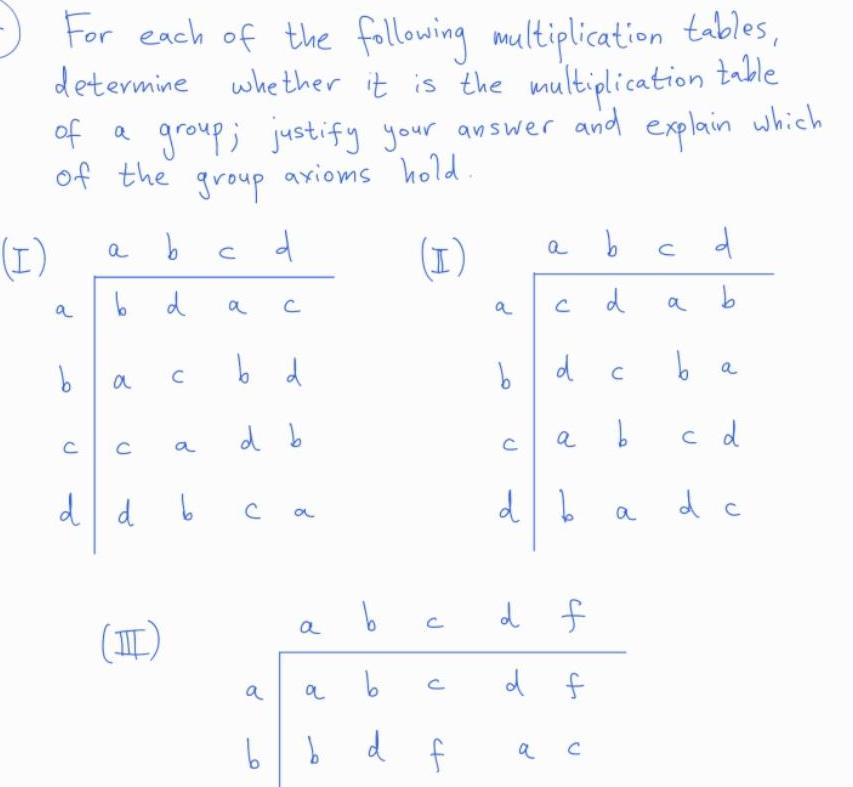 For each of the following multiplication tables,
determine whether it is the multiplication table
of a group; justify your answer and explain which
of the group axioms hold.
(I) a b c d
a b d a c
b a c b d
c c a d b
d d b c a
(II) a b c d
a c d a b
b d c b a
c a b c d
d b a d c
(III) a b c d f
a a b c d f
b b d f a c